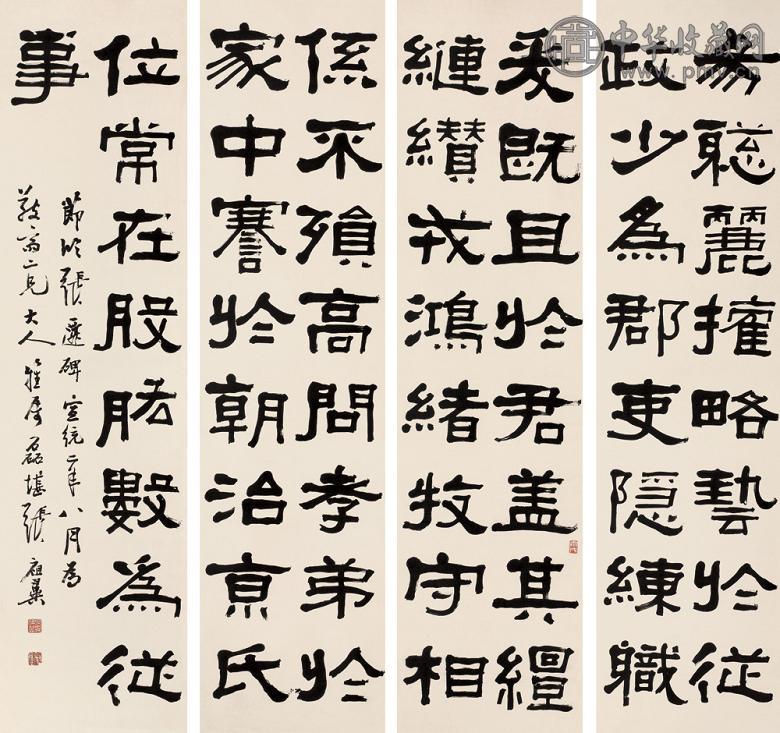 易聦麗權略藝於從
政少為郡吏隱練職
爰既且於君盖其繵
縺纉戎鴻緒牧守相
係不殞高問孝弟於
家中謇於朝治京氏
位常在股肱數為從
事
節臨張遷碑宣統二年八月為
二兄大人雅属磊堪張祖翼
中华收藏网
www.pmv.cn